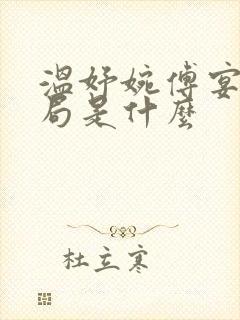 溫妤婉傅宴
局是什麼
杜立寒